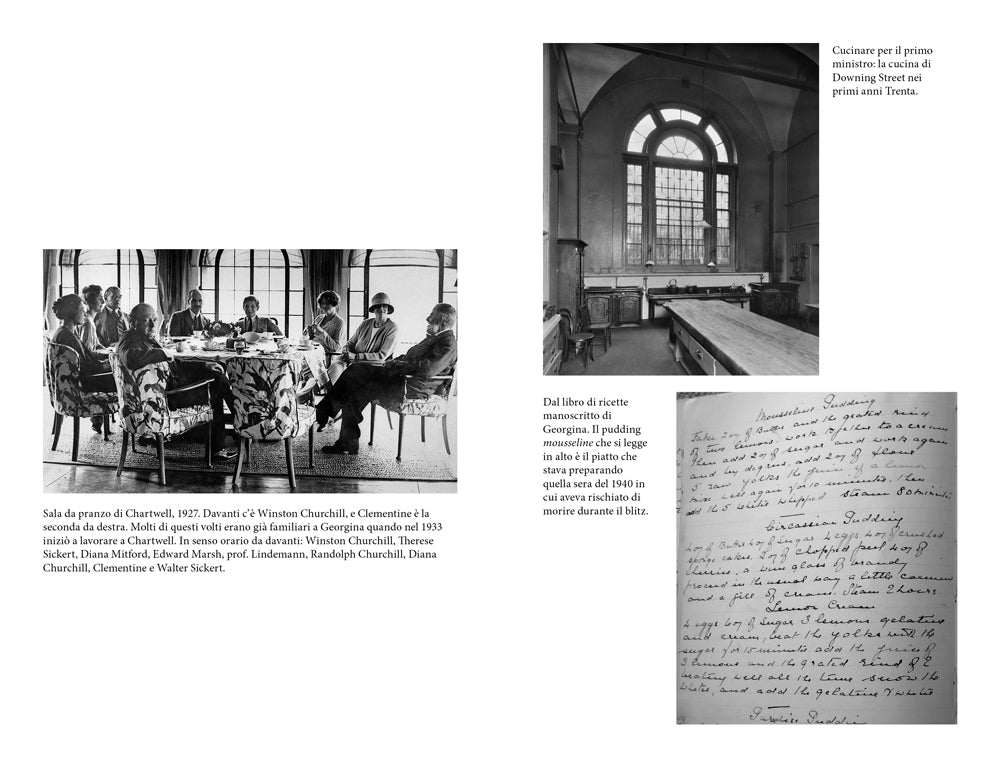 Sala da pranzo di Chartwell, 1927. Davanti c’è Winston Churchill, e Clementine è la
seconda da destra. Molti di questi volti erano già familiari a Georgina quando nel 1933
iniziò a lavorare a Chartwell. In senso orario da davanti: Winston Churchill, Therese
Sickert, Diana Mitford, Edward Marsh, prof. Lindemann, Randolph Churchill, Diana
Churchill, Clementine e Walter Sickert.
Cucinare per il primo
ministro: la cucina di
Downing Street nei
primi anni Trenta.
Dal libro di ricette
manoscritto di
Georgina. Il pudding
mousseline che si legge
in alto è il piatto che
stava preparando
quella sera del 1940 in
cui aveva rischiato di
morire durante il blitz.
Mousseline Pudding
Take 2oz of Butter and the grated rind
of two lemons. work together to a cream
then add 2oz of sugar and work again
and by degrees add 2oz of flour
5 raw yolks the juice of a lemon
mix well again for 10 minutes. then
add the 5 whites whipped steam 80 minutes
Circassian Pudding
4oz of Butter 4oz of Sugar 4 eggs 4oz of crushed
sponge cakes 2oz of chopped peel 4oz of
cherries, a wine glass of brandy
proceed in the usual way a little carmine
and a gill of cream. Steam 2 hours
Lemon Cream
4 eggs 6oz of Sugar 3 lemons gelatine
and cream, beat the yolks with the
sugar for 15 minutes add the juice of
3 lemons and the grated rind of 2
beating well all the time snow the
whites, and add the gelatine & whites
Pudding